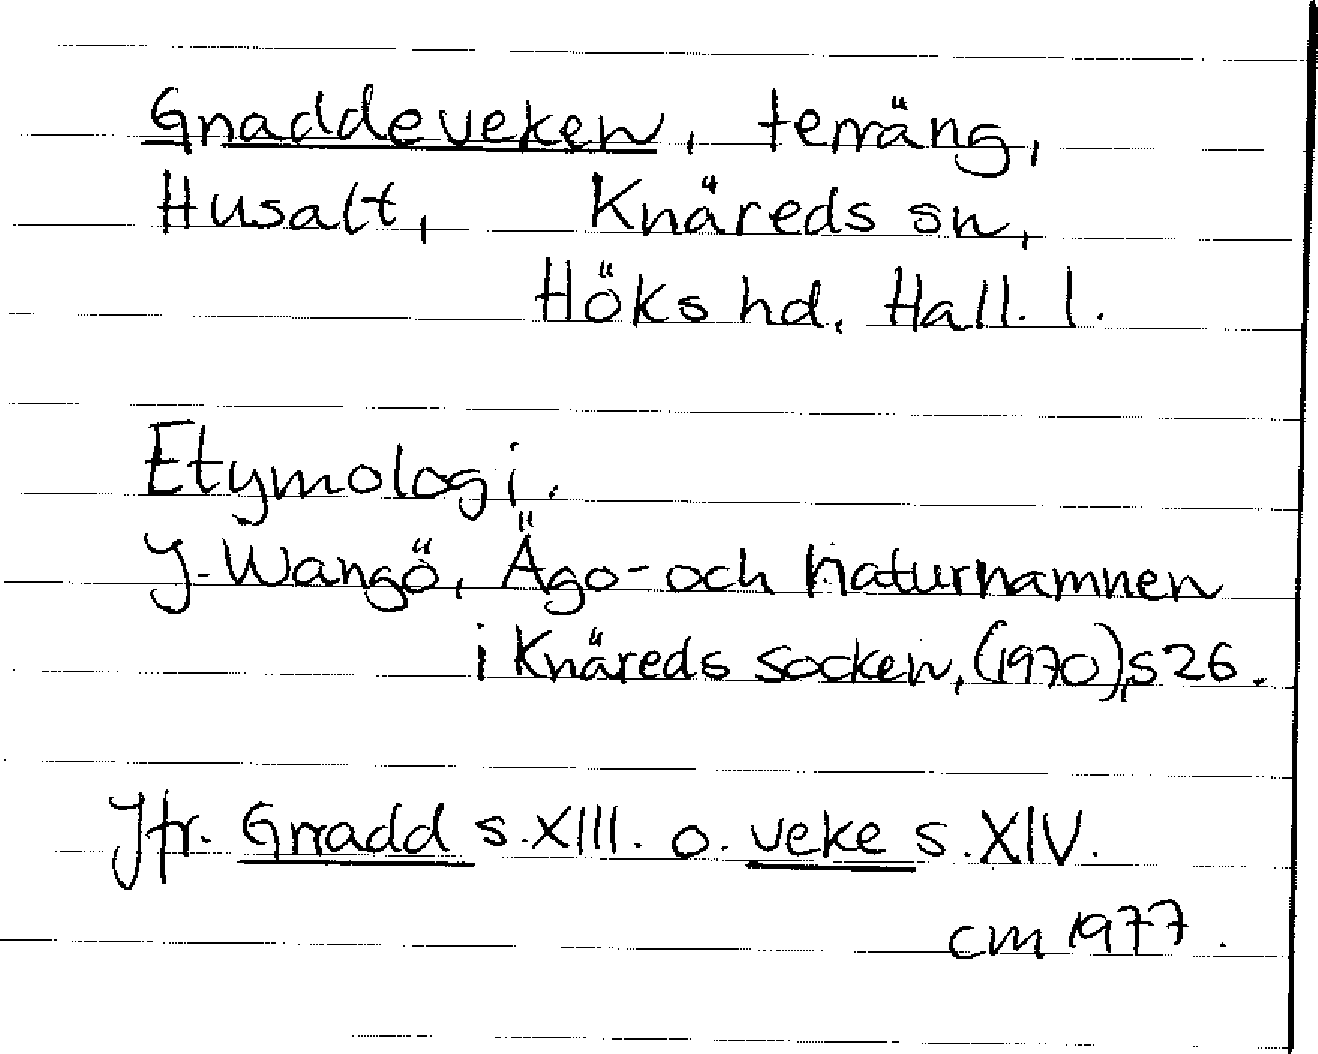 Gnaddeveken, terräng,
Husalt, Knäreds sn,
Höks hd. Hall. l.
Etymologi.
J. Wangö, Ägo- och naturnamnen
i Knäreds socken, (1970), s 26.
Jfr. Gnadd s. XIII. o. veke s. XIV.
CM 1977.